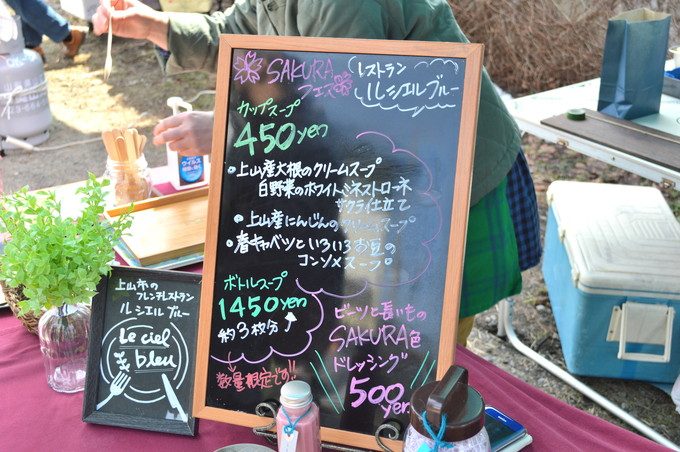 SAKURA
フェス
レストラン
ルシエルブルー
カップスープ
450yen
・上山産大根のクリームスープ
白野菜のホワイトミネストローネ
サクライ仕立て
・上山産にんじんのクリームスープ
・春キャベツといろいろお豆の
コンソメスープ
ボトルスープ
1450yen
約3枚分
数量限定です!!
ビーツと長いもの
SAKURA色
ドレッシング
500yen
上山市の
フレンチレストラン
ルシエルブルー
Le ciel
bleu